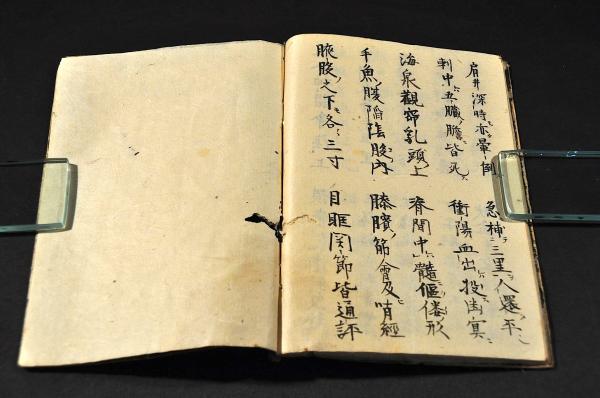 肩井深時亦暈倒 急補三里人還平
刺中五臓膽皆死 衝陽血出投幽冥
海泉觀帘乳頭上 脊間中髓傴倦形
千魚腹陷陰股内 膝臏筋會及腎經
腋股之下各三寸 目眶関節皆通評